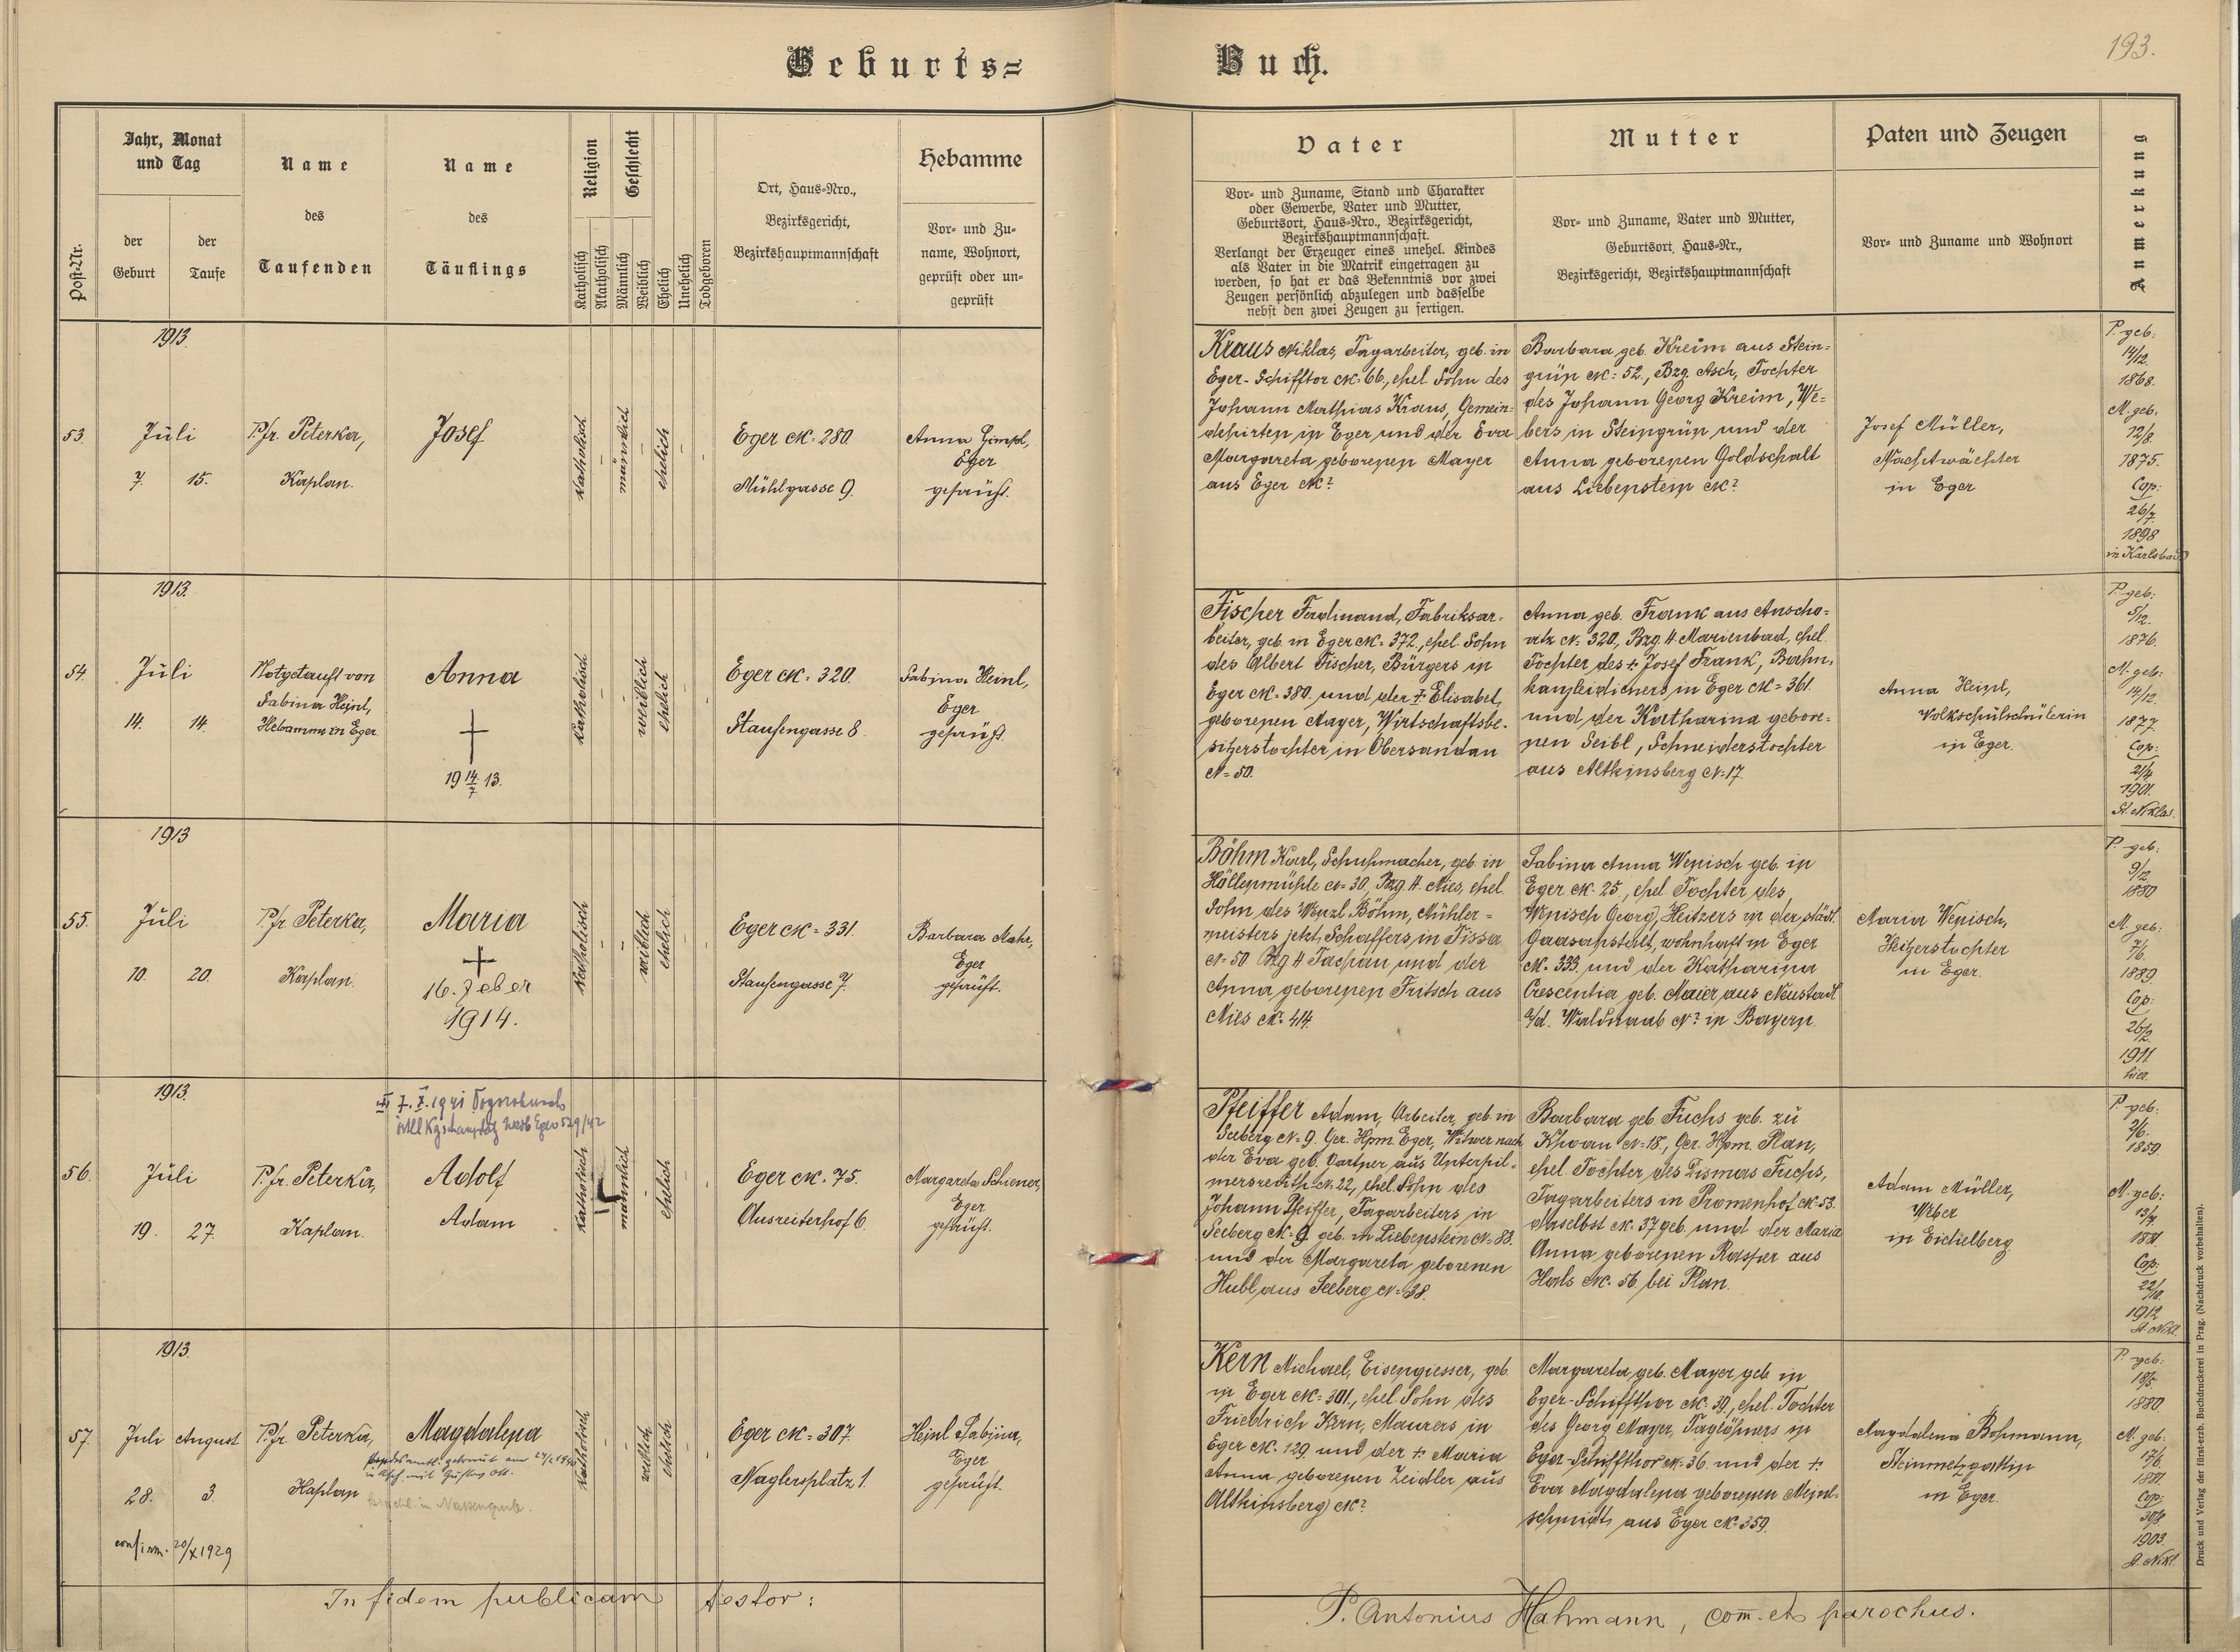 Geburts=
Buch.
193.
Post-Nr.
Jahr, Monat
und Tag
der
Geburt
der
Taufe
Name
des
Taufenden
Name
des
Täuflings
Religion
Katholisch
Akatholisch
Geschlecht
Männlich
Weiblich
Ehelich
Unehelich
Todgeboren
Ort, Haus-Nro.,
Bezirksgericht,
Bezirkshauptmannschaft
Hebamme
Vor- und Zu-
name, Wohnort,
geprüft oder un-
geprüft
Vater
Vor- und Zuname, Stand und Charakter
oder Gewerbe, Vater und Mutter,
Geburtsort, Haus-Nro., Bezirksgericht,
Bezirkshauptmannschaft.
Verlangt der Erzeuger eines unehel. Kindes
als Vater in die Matrik eingetragen zu
werden, so hat er das Bekenntnis vor zwei
Zeugen persönlich abzulegen und dasselbe
nebst den zwei Zeugen zu fertigen.
Mutter
Vor- und Zuname, Vater und Mutter,
Geburtsort, Haus-Nr.,
Bezirksgericht, Bezirkshauptmannschaft
Paten und Zeugen
Vor- und Zuname und Wohnort
Anmerkung
1913.
53.
Juli
7. 15.
P. fr. Peterka,
Kaplan.
Josef
katholisch
männlich
ehelich
Eger CN. 280.
Mühlgasse 9.
Anna
Eger
geprüft.
Kraus Niklas, Tagarbeiter, geb. in
Eger-Schifftor CN. 66, ehel. Sohn des
Johann Mathias Kraus, Gemein-
dehirten in Eger und der Eva
Margareta geborenen Mayer
aus Eger CN?
Barbara geb. Kreim aus Stein=
grün CN: 52., Bzg. Asch, Tochter
des Johann Georg Kreim, We=
bers in Steingrün und der
Anna geborenen Goldschalt
aus Liebenstein CN?
Josef Müller,
Nachtwächter
in Eger
P. geb:
14/12.
1868.
M. geb.
12/8.
1875.
Cop:
26/7.
1898
in Karlsbad
1913.
54.
Juli
14. 14.
Notgetauft von
Sabina Heinl,
Hebamme in Eger.
Anna
19 14/7 13.
katholisch
weiblich
ehelich
Eger CN. 320.
Staufengasse 8.
Sabina Heinl,
Eger
geprüft.
Fischer Ferdinand, Fabriksar-
beiter, geb. in Eger CN. 372, ehel. Sohn
des Albert Fischer, Bürgers in
Eger CN. 380. und der + Elisabet,
geborenen Mayer, Wirtschaftsbe-
sitzerstochter in Obersandau
N. 50.
Anna geb. Frank aus Auscho=
witz N. 320, Bzg. H. Marienbad, ehel.
Tochter des + Josef Frank, Bahn-
kanzleidieners in Eger CN. 361.
und der Katharina gebore=
nen Seibl, Schneiderstochter
aus Altkinsberg N. 17.
Anna Heinl,
Volkschulschülerin
in Eger.
P. geb:
5/12.
1876.
M. geb:
14/12.
1877.
Cop:
21/4.
1901.
St. Niklas.
1913
55.
Juli
10. 20.
P. fr. Peterka,
Kaplan.
Maria
16. Feber
1914.
katholisch
weiblich
ehelich
Eger CN. 331.
Staufengasse 7.
Barbara
Eger
geprüft.
Böhm Karl, Schuhmacher, geb. in
Höllenmühle N. 30, Bzg. H. Mies, ehel.
Sohn des Wenzl Böhm, Mühler=
meisters jetzt Schaffers, in Tissa
N. 50 Bzg H Tachau und der
Anna geborenen Fritsch aus
Mies CN. 414.
Sabina Anna Wenisch geb. in
Eger CN. 25, ehel. Tochter des
Wenisch Georg, Heitzers in der städt.
Gaasanstalt, wohnhaft in Eger
CN. 333. und der Katharina
Crescentia geb. Maier aus Neustadt
a/d. Waldnaab N? in Bayern.
Maria Wenisch,
Heitzerstochter
in Eger.
P. geb:
9/2.
1880
M. geb:
7/6.
1889.
Cop:
26/2.
1911.
hier.
1913.
7. X. 1941
56.
Juli
19. 27.
P. fr. Peterka,
Kaplan.
Adolf
Adam
katholisch
männlich
ehelich
Eger CN. 75.
Ausreiterhof 6.
Margareta Schiener,
Eger
geprüft.
Pfeiffer Adam, Arbeiter, geb. in
Seeberg N. 9. Ger. Hpm. Eger, Witwer nach
der Eva geb. Gartner aus Unterpil=
mersreuth N. 22, ehel. Sohn des
Johann Pfeiffer, Tagarbeiters in
Seeberg N. 9. geb. in Liebenstein N. 83.
und der Margareta geborenen
Hubl aus Seeberg N. 38.
Barbara geb. Fuchs geb. zu
Khoau N. 18, Ger. Hpm. Plan,
ehel. Tochter des Dismas Fuchs,
Tagarbeiters in Promenhof N. 53.
daselbst N. 37 geb. und der Maria
Anna geborenen Rasper aus
Hals N. 56 bei Plan.
Adam Müller,
Weber
in Eichelberg.
P. geb:
2/6.
1859.
M. geb:
13/7.
1881
Cop:
22/10.
1912
St. Nikl.
1913.
57.
Juli August
28. 3.
confirm. 20/X 1929
P. fr. Peterka,
Kaplan
Magdalena
katholisch
weiblich
ehelich
Eger CN. 307.
Naglersplatz 1.
Heinl Sabina,
Eger
geprüft.
Kern Michael, Eisengiesser, geb.
in Eger CN. 301., ehel. Sohn des
Friedrich Kern, Maurers in
Eger CN. 129. und der + Maria
Anna geborenen Zeidler aus
Altkinsberg CN?
Margareta geb. Mayer geb. in
Eger-Schiffthor CN. 39., ehel. Tochter
des Georg Mayer, Taglöhners in
Eger-Schiffthor CN. 36. und der +
Eva Magdalena geborenen Meinl-
schmidt, aus Eger CN. 359.
Magdalena Bohmann,
Steinmetzgattin
in Eger.
P. geb:
18/5.
1880.
M. geb:
17/6.
1881.
Cop:
30/8.
1903.
St. Nikl.
In fidem publicam testor:
P. Antonius Hahmann, com. et parochus.
Druck und Verlag der fürst-erzb. Buchdruckerei in Prag. (Nachdruck vorbehalten).